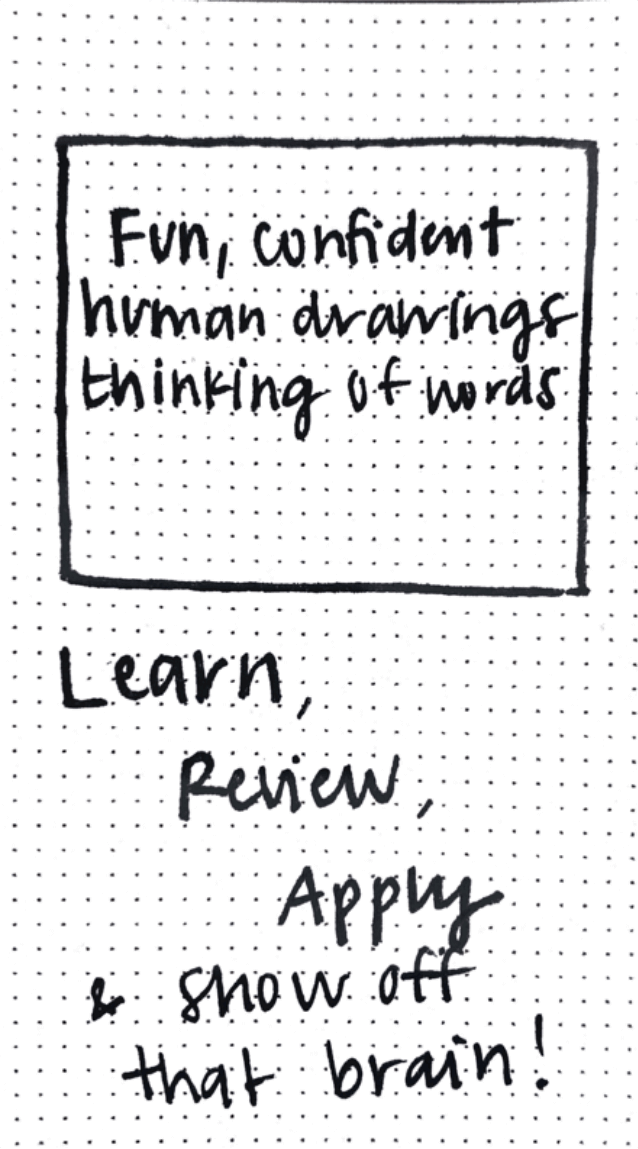 Fun, confident
human drawings
thinking of words
Learn,
Review,
Apply
& show off
that brain!